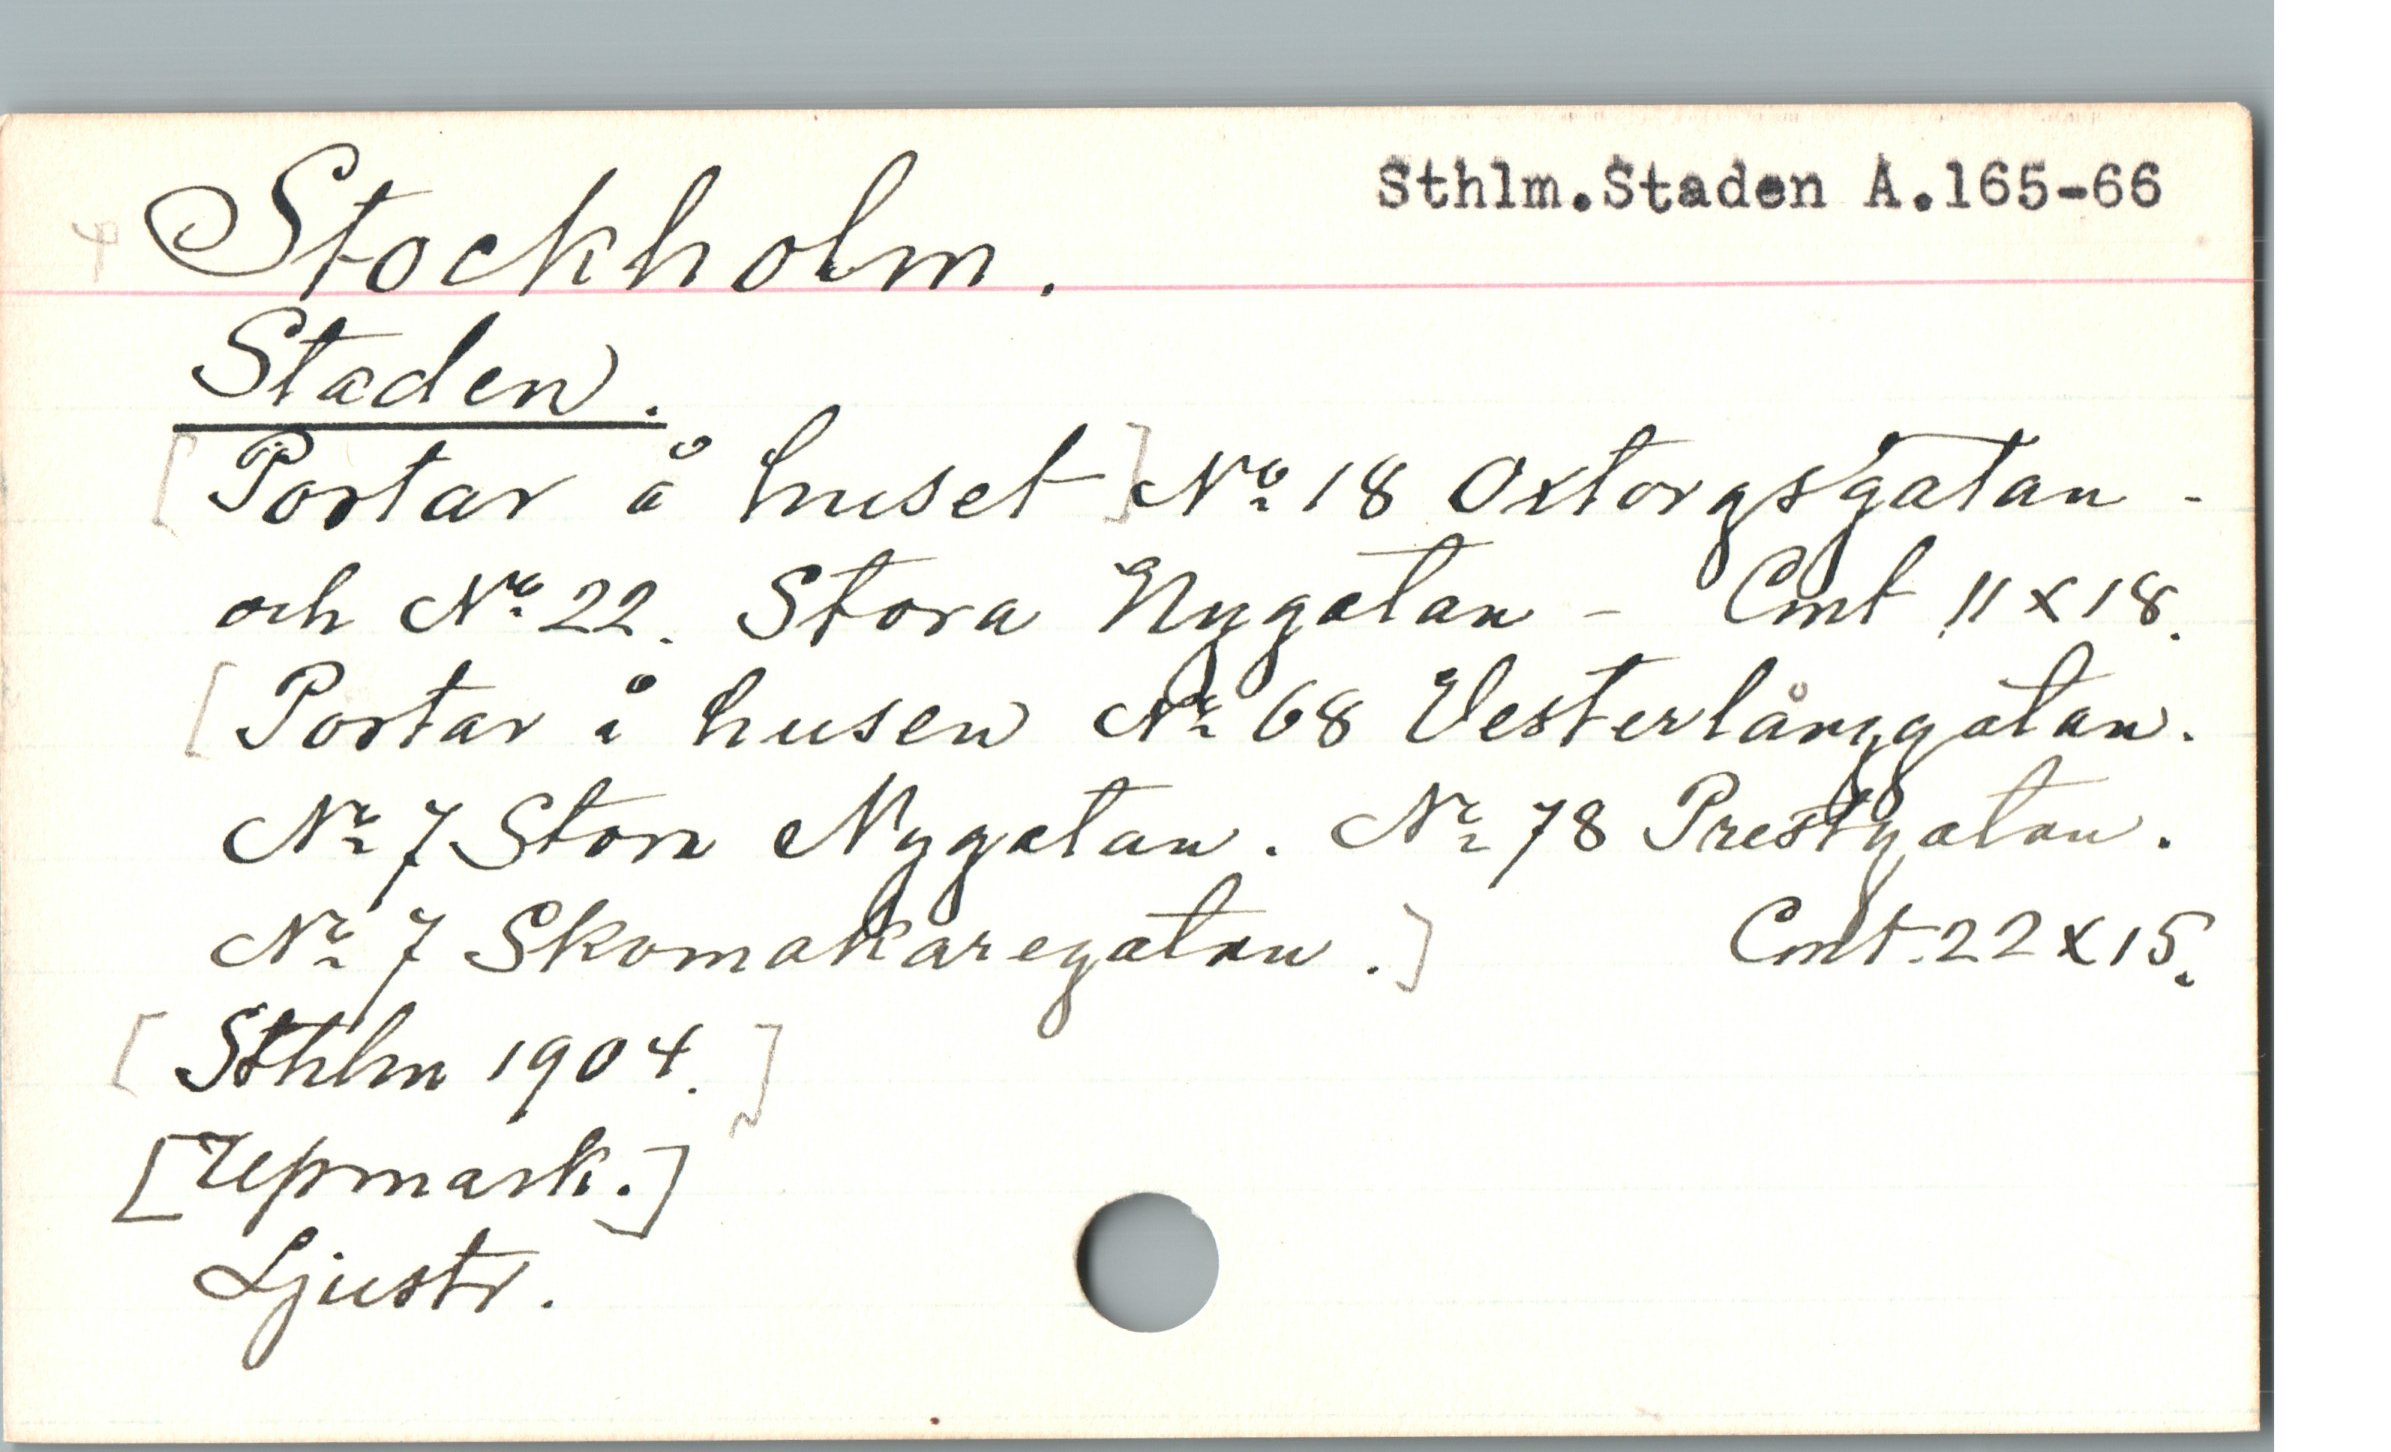 Sthlm.Staden A.165-66
Stockholm.
Staden.
[Portar å huset] No 18 Oxtorgsgatan -
och No 22. Stora Nygatan - Cmt 11 x 18.
[Portar å husen Nr 68 Vesterlånggatan.
Nr 7 Stora Nygatan. Nr 78 Prestgatan.
Nr 7 Skomakaregatan.] Cmt. 22 x 15.
[Sthlm 1904.]
[Upmark.]
Ljustr.